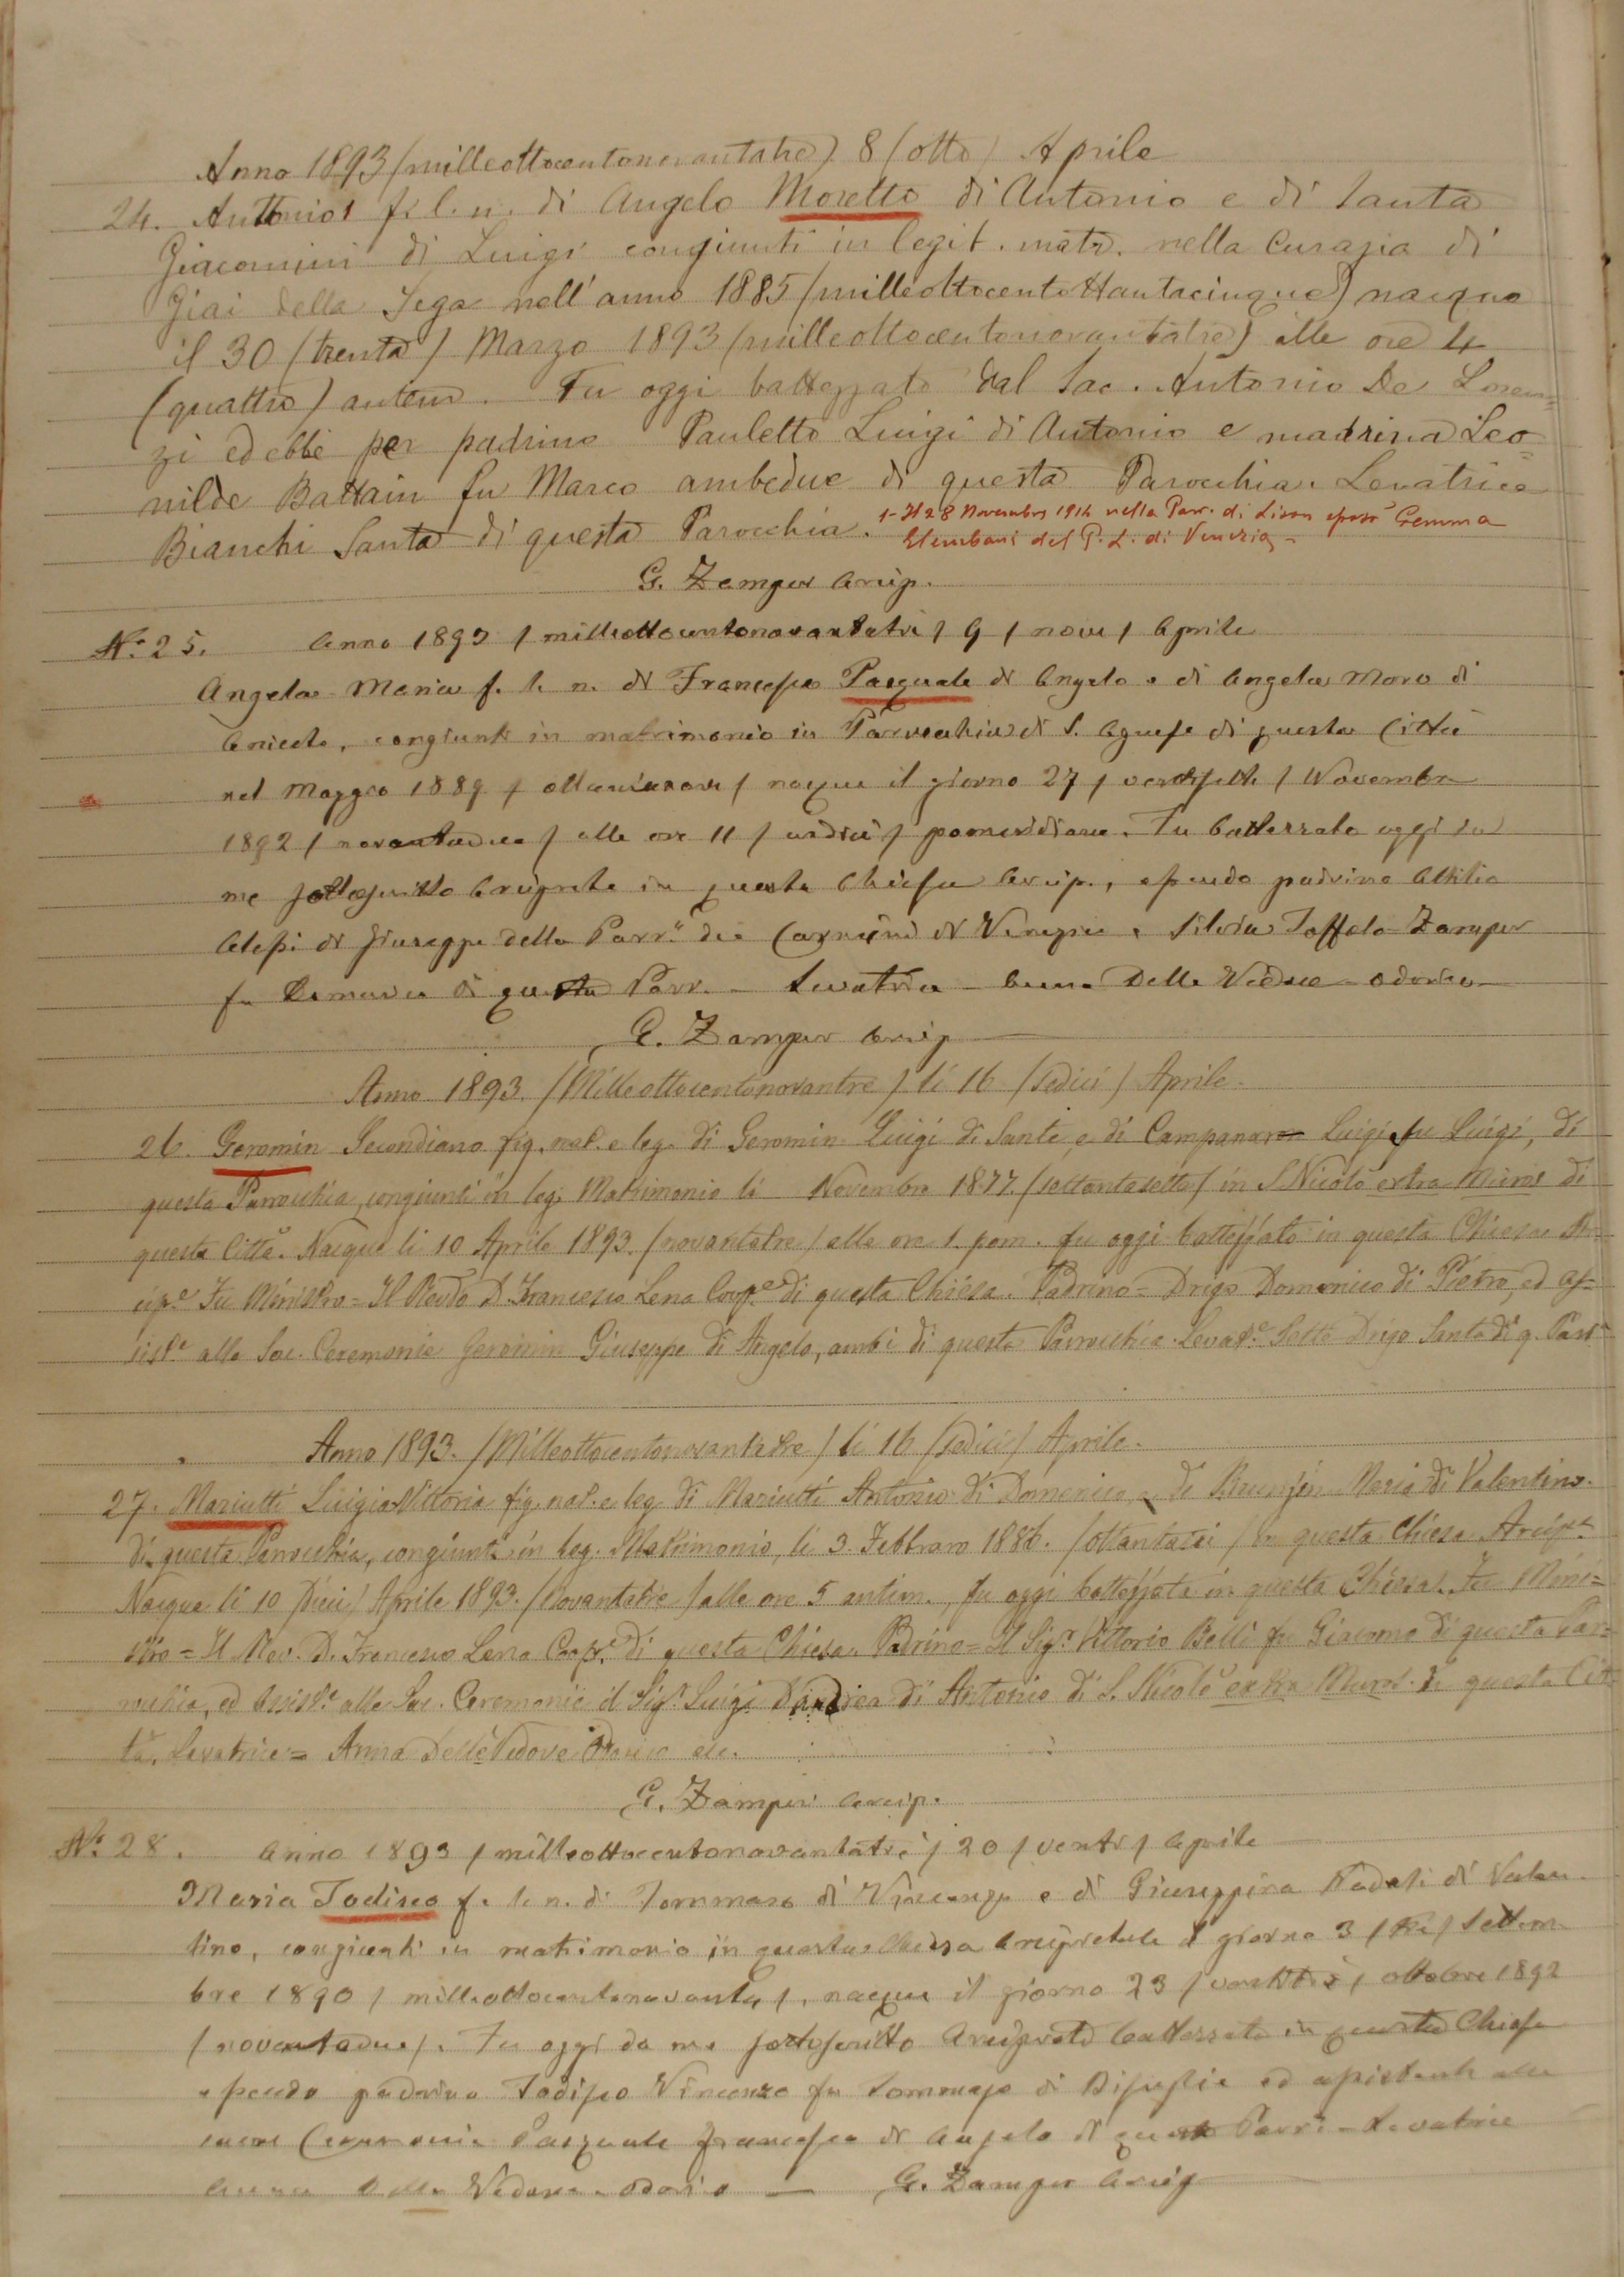 Anno 1893 (milleottocentonovantatre) 8 (otto) Aprile
24. Antonio f. l. n. di Angelo Moretto di Antonio e di Santa
Giacomini di Luigi congiunti in legit. matr. nella Curazia di
Giai della Sega nell'anno 1885 (milleottocentottantacinque) nacque
il 30 (trenta) Marzo 1893 (milleottocentonovantatre) alle ore 4
(quattro) antem. Fu oggi battezzato dal Sac. Antonio De Loren=
zi ed ebbe per padrino Pauletto Luigi di Antonio e madrina Leo=
nilde Battain fu Marco ambedue di questa Parocchia. Levatrice
Bianchi Santa di questa Parocchia.
1- Il 28 Novembre 1914 nella Parr. di Lison sposò Gemma
del P. L. di Venezia -
G. Zamper Arcip.
N.° 25. Anno 1893 / milleottocentonovantatre / 9 / nove / Aprile
Angela Maria f. l. n. di Francesco Pasquale di Angelo e di Angela Moro di
Aniceto, congiunti in matrimonio in Parrocchia di S. Agnese di questa Città
nel Maggio 1889 / ottantanove / nacque il giorno 27 / ventisette / Novembre
1892 / novantadue / alle ore 11 / undici / pomeridiane. Fu battezzata oggi da
me sottoscritto Arciprete in questa Chiesa Arcip., essendo padrino Attilio
Alessi di Giuseppe della Parr.a dei Carmini di Venezia e Silvia Toffolo Zamper
fu di questa Parr. - Levatrice - Anna Delle Vedove - Odorico -
G. Zamper Arcip
Anno 1893. (Milleottocentonovantre) li 16 (sedici) Aprile.
26. Geromin Secondiano fig. nat. e leg. di Geromin Luigi di Sante, e di Campanaro Luigi fu Luigi, di
questa Parrocchia, congiunti in leg. Matrimonio li Novembre 1877. (settantasette) in S. Nicolò extra Muros di
questa Città. Nacque li 10 Aprile 1893. (novantatre) alle ore 1. pom. fu oggi battezzato in questa Chiesa Ar=
cip.e Fu Ministro = Il Revdo D. Francesco Lena Coop.e di questa Chiesa. Padrino = Drigo Domenico di Pietro, ed As=
sist.e alle Sac. Cerimonie Geromin Giuseppe di Angelo, ambi di questa Parrocchia. Levat.e Drigo Santa di q. Parr.a
Anno 1893. (Milleottocentonovantatre) li 16 (sedici) Aprile.
27. Mariutti Luigia Vittoria fig. nat. e leg. di Mariutti Antonio di Domenico, e di Maria di Valentino.
di questa Parrocchia, congiunti in leg. Matrimonio, li 3 Febbraro 1886. (ottantasei) in questa Chiesa Arcip.e
Nacque li 10 (dieci) Aprile 1893. (novantatre) alle ore 5 antim., fu oggi battezzata in questa Chiesa. Fu Mini=
stro = Il Rev. D. Francesco Lena Coop.e di questa Chiesa. Padrino = Il Sig.r Vittorio Belli fu Giacomo di questa Par=
rocchia, ed Assist.e alle Sac. Cerimonie il Sig.r Luigi D'Andrea di Antonio di S. Nicolò extra Muros di questa Cit=
tà. Levatrice = Anna Delle Vedove Odorico ele.
G. Zamper Arcip.
N.° 28. Anno 1893 / milleottocentonovantatre / 20 / venti / Aprile
Maria Todisco f. l. n. di Tommaso di Vincenzo e di Giuseppina di Valen=
tino, congiunti in matrimonio in questa Chiesa Arcipretale il giorno 3 / tre / Settem=
bre 1890 / milleottocentonovanta /, nacque il giorno 23 / ventitre / ottobre 1892
/ novantadue /. Fu oggi da me sottoscritto Arciprete battezzata in questa Chiesa
essendo padrino Todisco Vincenzo fu Tommaso di Bisceglie ed assistente alle
sacre Cerimonie Pasquale Francesco di Angelo di questa Parr. - Levatrice
Anna Delle Vedove - Odorico — G. Zamper Arcip